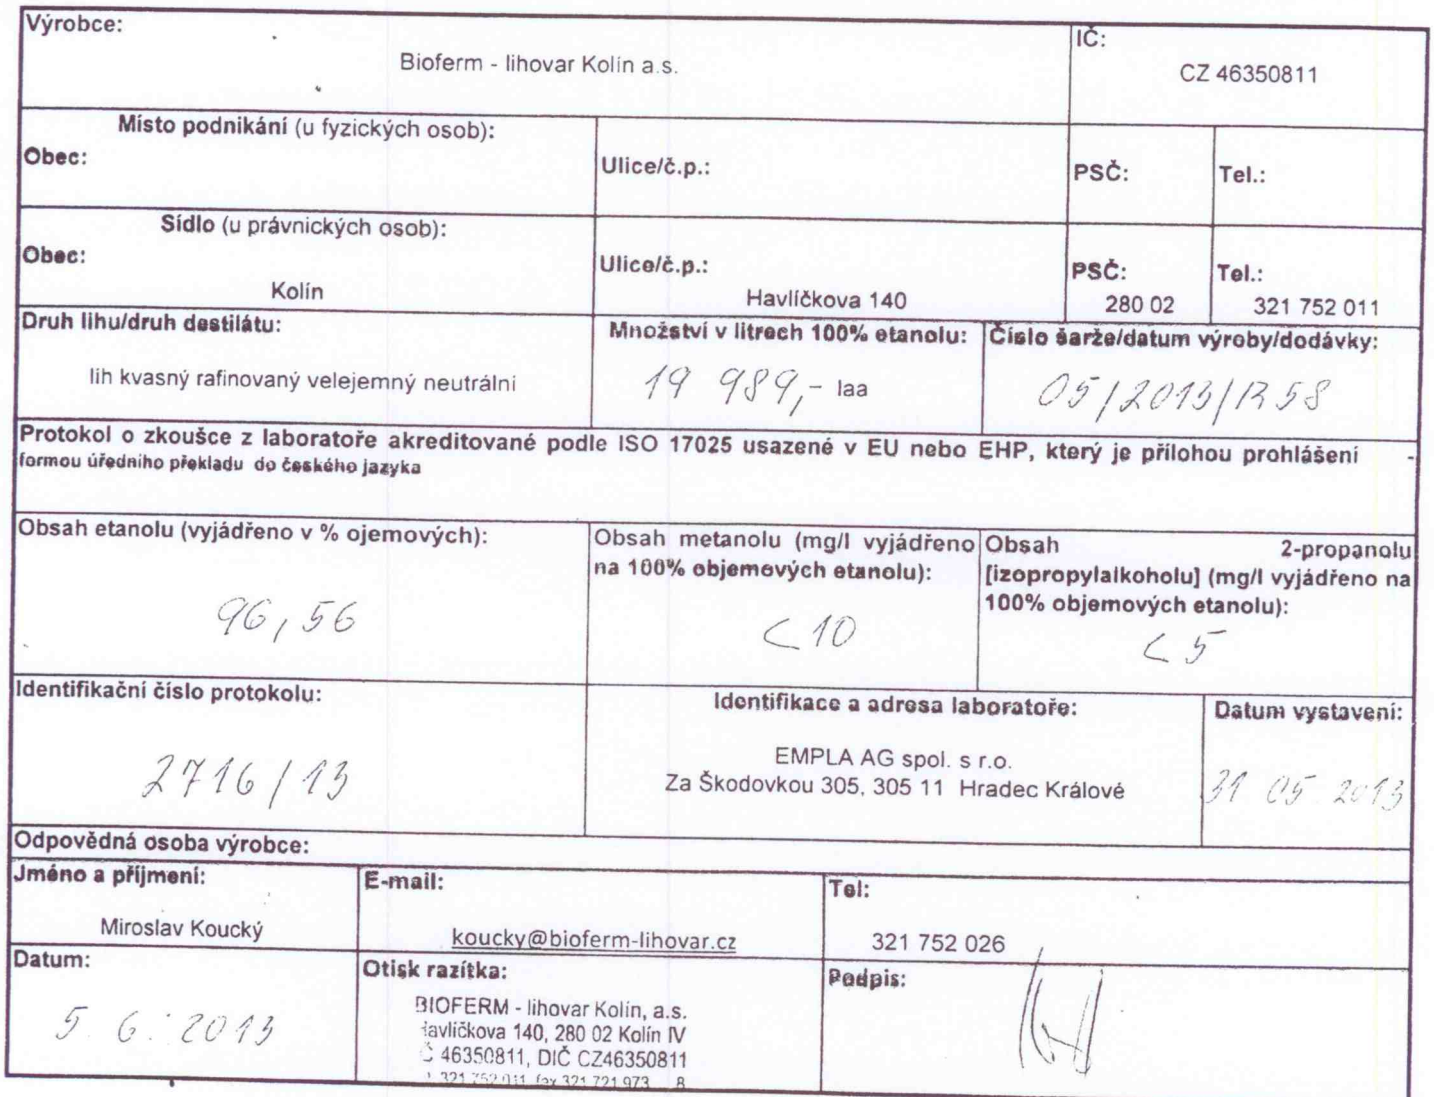 Výrobce:
Bioferm - lihovar Kolín a.s.
IČ:
CZ 46350811
Místo podnikání (u fyzických osob):
Obec:
Ulice/č.p.:
PSČ:
Tel.:
Sídlo (u právnických osob):
Obec:
Kolín
Ulice/č.p.:
Havlíčkova 140
PSČ:
280 02
Tel.:
321 752 011
Druh lihu/druh destilátu:
lih kvasný rafinovaný velejemný neutrální
Množství v litrech 100% etanolu:
19 989,- laa
Číslo šarže/datum výroby/dodávky:
05/2013/R58
Protokol o zkoušce z laboratoře akreditované podle ISO 17025 usazené v EU nebo EHP, který je přílohou prohlášení -
formou úředního překladu do českého jazyka
Obsah etanolu (vyjádřeno v % ojemových):
96,56
Obsah metanolu (mg/l vyjádřeno
na 100% objemových etanolu):
< 10
Obsah 2-propanolu
[izopropylalkoholu] (mg/l vyjádřeno na
100% objemových etanolu):
< 5
Identifikační číslo protokolu:
2716/13
Identifikace a adresa laboratoře:
EMPLA AG spol. s r.o.
Za Škodovkou 305, 305 11 Hradec Králové
Datum vystavení:
31 05. 2013
Odpovědná osoba výrobce:
Jméno a příjmení:
Miroslav Koucký
E-mail:
koucky@bioferm-lihovar.cz
Tel:
321 752 026
Datum:
5. 6. 2013
Otisk razítka:
BIOFERM - lihovar Kolín, a.s.
Havlíčkova 140, 280 02 Kolín IV
Č 46350811, DIČ CZ46350811
321 752 011, fax 321 721 973 8
Podpis: